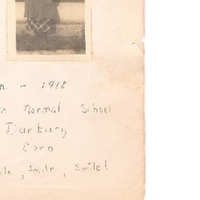 - 1918
Normal School
Danbury
Conn
, Smile, Smile!